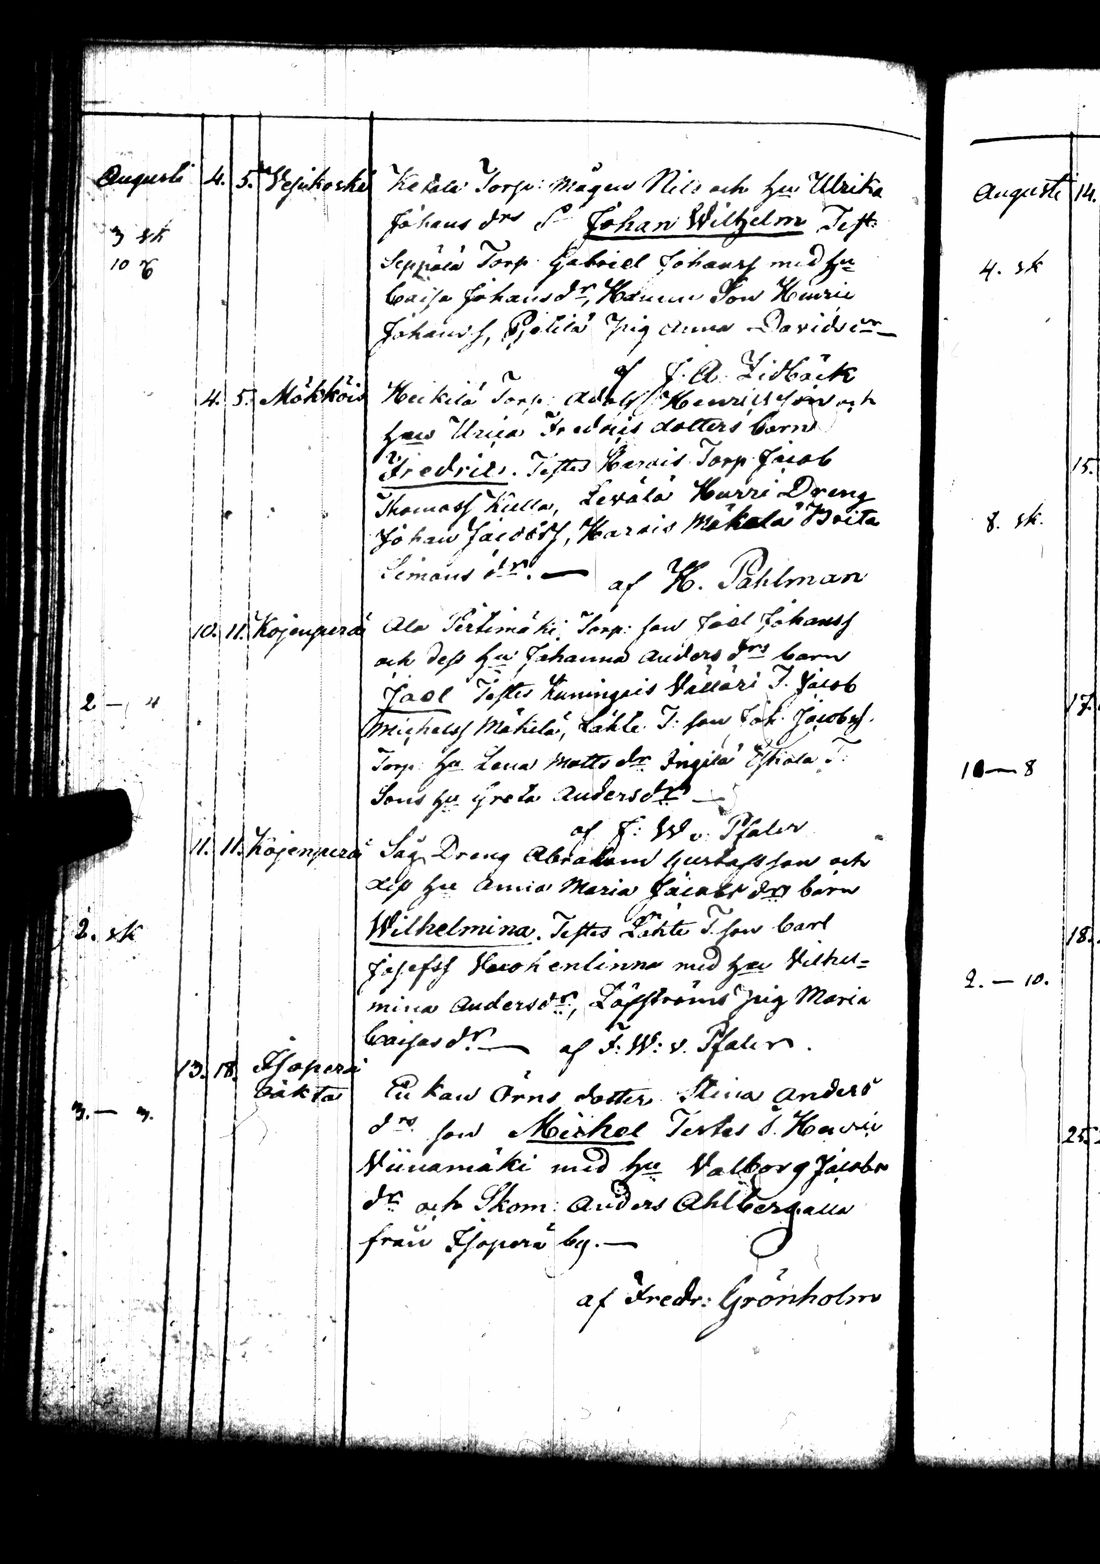 Augusti 4. 5. Vesikoski Ketola Torp: Mågen Nils och hu Ulrika
Johans drs S. Johan Wilhelm Test.
3 sk
Seppälä Torp Gabriel Johanss med hu
10 r
Caisa Johans dr, Hannu Son Henric
Johanss, Pietilä pig Anna Davids dr —
af J. A. Lidbäck
4. 5. Mökköis Heikilä Torp: Adolf Henricsson och
hus Ulrica Fredrics dotters barn
Fredric. Testes Harois Torp Jacob
Thomass Kulla, Levälä Harri Dreng
Johan Jacobss, Harois Mäkälä Brita
Simons dr. —
af H. Pahlman
10. 11. Kojenperä Ala Perttimäki Torp: son Joel Johanss
och dess hu Johanna Anders drs barn
Joel Testes Kuningois Välläri T. Jacob
2 — 4
Michelss Mäkilä, Lähte T: son Joh. Jacobss.
Torp. hu Lena Matts dr Ingilä Eskola T:
Sons hu Greta Anders dr —
af F: W v. Pfaler
11. 11. Kojenperä Säg Dreng Abraham Gustafsson och
dess hu Anna Maria Jacobs drs barn
Wilhelmina. Testes Lähte T. son Carl
2. sk
Josefss Vuohenlinna med hu Vilhel=
mina Anders dr, Löfströms pig Maria
Caisas dr. — af F: W: v. Pfaler.
13. 18. Isoperä
bäkta Enkan Örns dotter Stina Anders
3. — 3.
drs son Michel Testes S. Henric
Viinamäki med hu Valborg Jacobs
dr och Skom: Anders Ahlberg alla
från Isoperä by. —
af Fredr: Grönholm
Augusti 14.
4. sk
15.
8. sk.
17.
10 — 8
18.
2. — 10.
25.